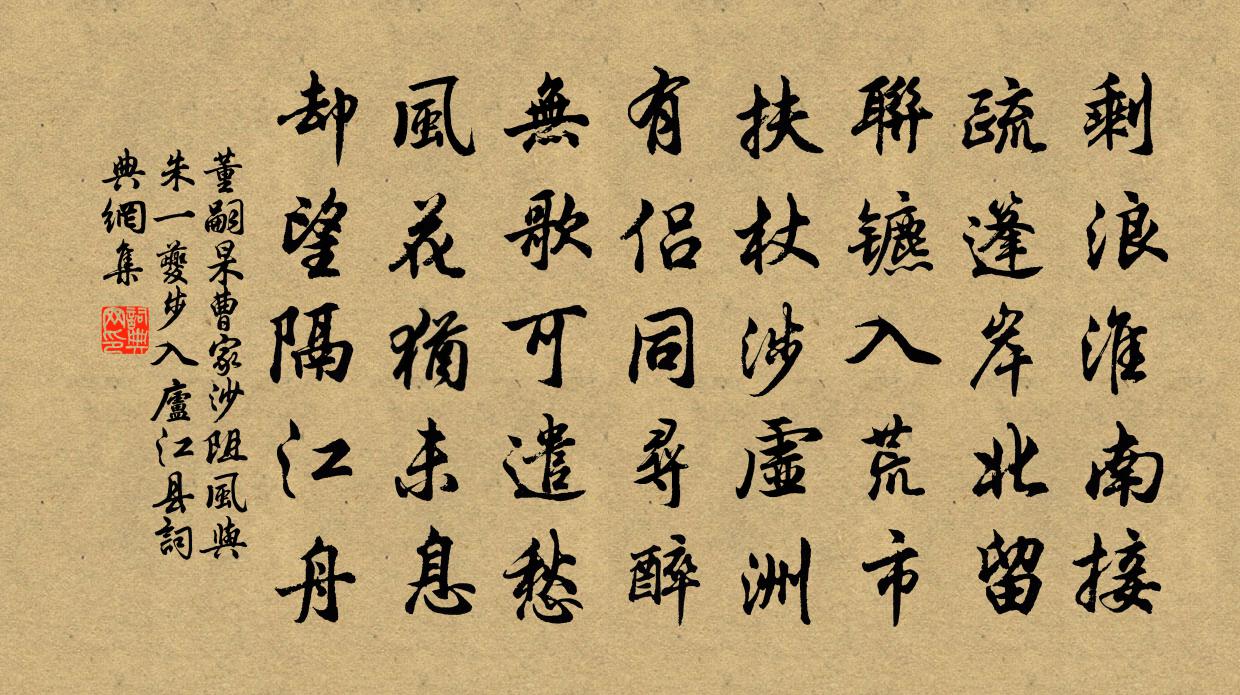 剩浪淮南接
疏蓬岸北留
聯镳入荒市
扶杖涉虛洲
有侣同尋醉
無歌可遣愁
風花猶未息
却望隔江舟
董嗣杲曹家沙阻風與
朱一夔步入廬江县詞
典網集
詞典網印